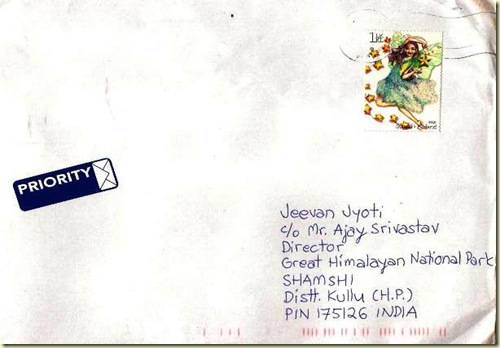 1 lk
PRIORITY
Jeevan Jyoti
c/o Mr. Ajay Srivastav
Director
Great Himalayan National Park,
SHAMSHI
Distt. Kullu (H.P.)
PIN 175126 INDIA